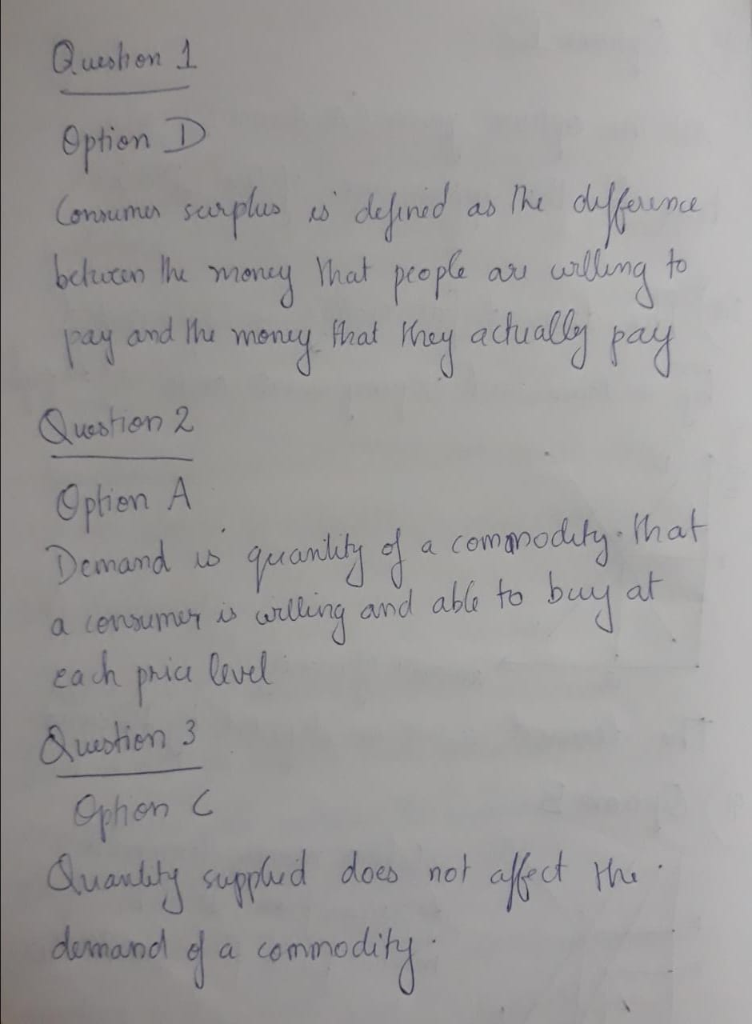 Question 1
Option D
Consumer surplus is defined as the difference
between the money that people are willing to
pay and the money that they actually pay
Question 2
Option A
Demand is quantity of a commodity that
a consumer is willing and able to buy at
each price level
Question 3
Option C
Quantity supplied does not affect the
demand of a commodity.